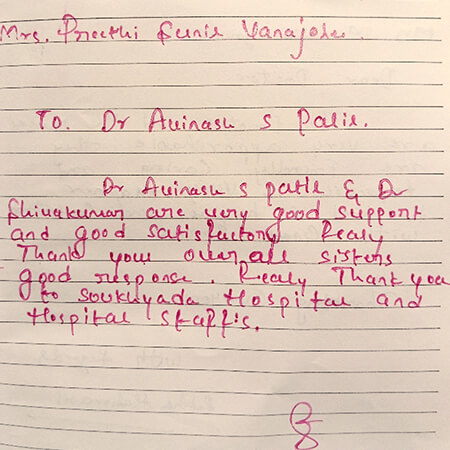 Mrs. Preethi Sunil Vanajole
To. Dr Avinash s Patil.
Dr Avinash s patil & Dr
Shivakumar are very good support
and good satisfactory Realy
Thank your over,all sisters
good response. Realy Thank you
to Soukhyada Hospital and
Hospital Staff's.